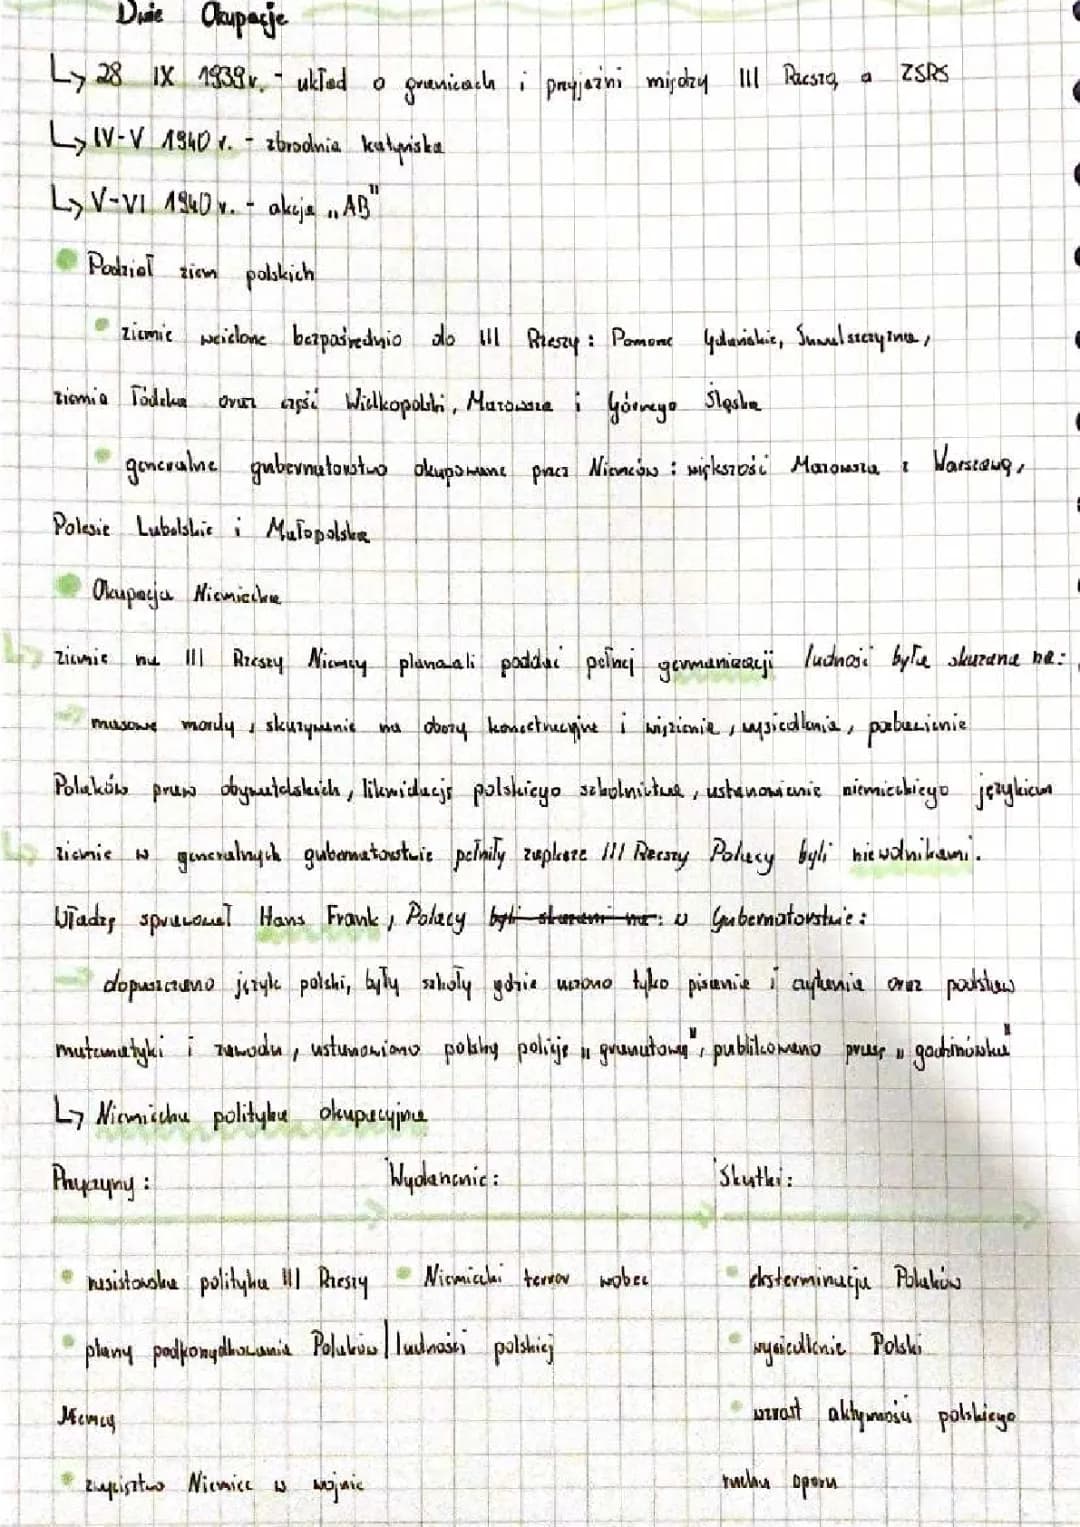 Dwie Okupacje
↳ 28 IX 1939r. - układ o granicach i przyjaźni między III Rzeszą, a ZSRS
↳ IV-V 1940 r. - zbrodnia katyńska
↳ V-VI 1940 r. - akcja „AB"
• Podział ziem polskich
• ziemie wcielone bezpośrednio do III Rzeszy: Pomorze Gdańskie, Suwalszczyzna,
ziemia łódzka oraz część Wielkopolski, Mazowsza i Górnego Śląska
• generalne gubernatorstwo okupowane przez Niemców: większość Mazowsza z Warszawą,
Polesie Lubelskie i Małopolska
• Okupacja Niemiecka
↳ ziemie na III Rzeszy Niemcy planowali poddać pełnej germanizacji ludność była skazana na:
→ masowe mordy, skazywanie na obozy koncentracyjne i więzienia, wysiedlenia, pozbawienie
Polaków praw obywatelskich, likwidację polskiego szkolnictwa, ustanowienie niemieckiego językiem
↳ ziemie w generalnych gubernatorstwie pełniły zaplecze III Rzeszy Polacy byli niewolnikami.
Władzę sprawował Hans Frank, Polacy byli skazani na: w Gubernatorstwie:
→ dopuszczono język polski, były szkoły gdzie uczono tylko pisania i czytania oraz podstaw
matematyki i zawodu, ustanowiono polską policję „granatową", publikowano prasę „gadzinówka"
↳ Niemiecka polityka okupacyjna
Przyczyny: Wydarzenie: Skutki:
• rasistowska polityka III Rzeszy • Niemiecki terror wobec • eksterminacja Polaków
• plany podporządkowania Polaków | ludności polskiej • wysiedlenie Polski
• wzrost aktywności polskiego
• zwycięstwo Niemiec w wojnie ruchu oporu